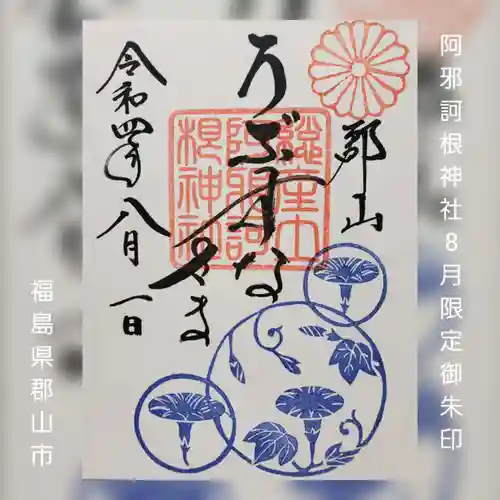 阿邪訶根神社8月限定御朱印
郡山
うぶすな
さま
総産土
阿邪訶
根神社
令和四年
八月
一日
福島県郡山市